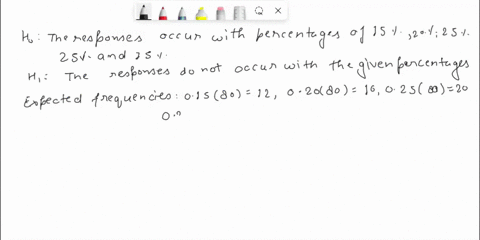 H₀: The responses occur with percentages of 15%, 20%, 25%
25% and 15%.
H₁: The responses do not occur with the given percentages
Expected frequencies: 0.15(80) = 12, 0.20(80) = 16, 0.25(80) = 20
0.